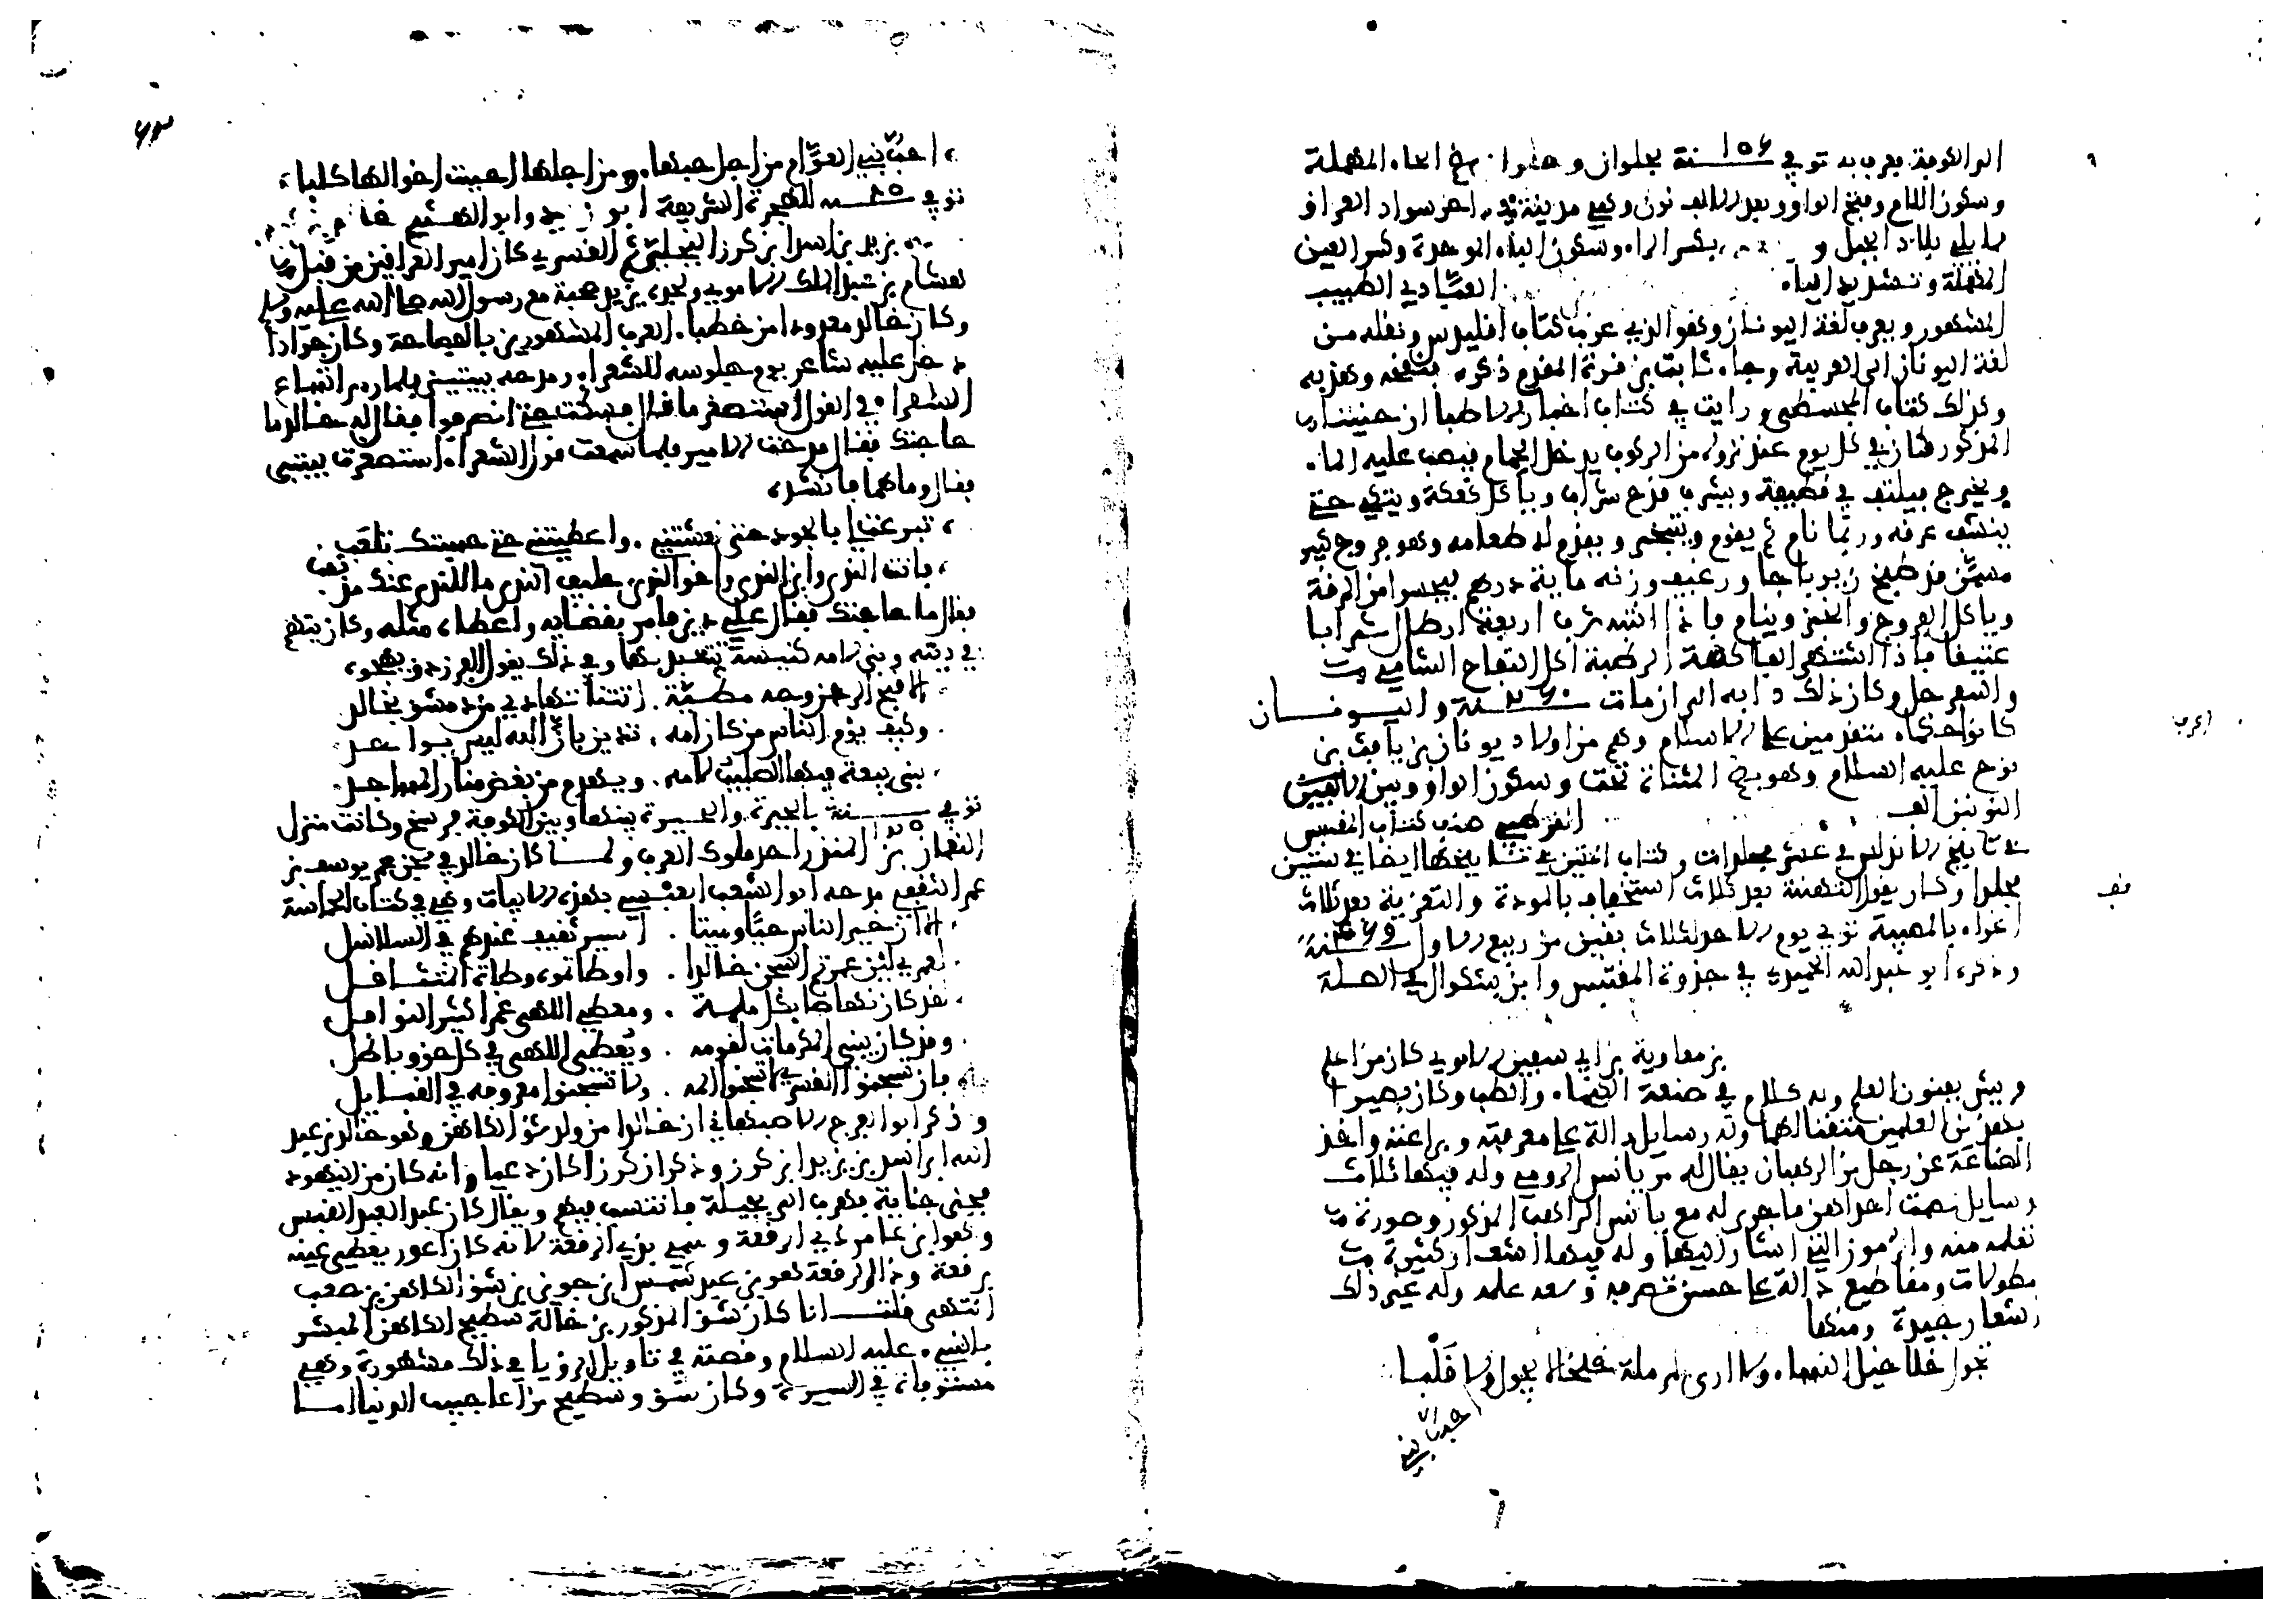 الى الكوفة يعرف به توفي سنة ١٥٦ بحلوان وحلوان بضم الحاء المهملة
وسكون اللام وفتح الواو وبعد الالف نون وهي مدينة في اخر سواد العراق
مما يلي بلاد الجبل و بكسر الراء وسكون الباء الموحدة وكسر العين
المهملة وتشديد الياء العبادي الطبيب
المشهور ويعرف لغة اليونان وهو الذي عرب كتاب اقليدس ونقله من
لغة اليونان الى العربية وجاء ثابت بن قرة المقدم ذكره فنقحه وهذبه
وكذلك كتاب المجسطي ورايت في كتاب اخبار الاطبا ان حنينا
المذكور كان في كل يوم عند نزوله من الركوب يدخل الحمام فيصب عليه الماء
ويخرج فيلتف في قطيفة ويشرب قدح شراب وياكل كعكة ويتكي حتى
ينشف عرقه وربما نام ثم يقوم ويتبخر ويقدم له طعامه وهو فروج كبير
مسمن قد طبخ زيرباجا ورغيف وزنه مايتا درهم فيحسو من المرقة
وياكل الفروج والخبز وينام فاذا انتبه شرب اربعة ارطال شرابا
عتيقا فاذا اشتهى الفاكهة الرطبة اكل التفاح الشامي
والسفرجل وكان ذلك دابه الى ان مات سنة ٢٦٠ واليونان
كانوا حكماء متقدمين على الاسلام وهم من اولاد يونان بن يافث بن
نوح عليه السلام وهو بضم المثناة تحت وسكون الواو وبين
النونين الف القرطبي صاحب كتاب المقتبس
في تاريخ الاندلس في عشر مجلدات وكتاب المتين في تاريخها ايضا في ستين
مجلدا وكان يقول التهنئة بعد ثلاث استخفاف بالمودة والتعزية بعد ثلاث
اغراء بالمصيبة توفي يوم الاحد لثلاث بقين من ربيع الاول سنة ٤٦٩
وذكره ابو عبد الله الحميدي في جذوة المقتبس وابن بشكوال في الصلة
بن معاوية بن ابي سفيان الاموي كان من اعلم
قريش بفنون العلم وله كلام في صنعة الكيمياء والطب وكان بصيرا
بهذين العلمين متقنا لهما وله رسايل دالة على معرفته وبراعته واخذ
الصناعة عن رجل من الرهبان يقال له مريانس الرومي وله فيها ثلاث
رسايل تضمنت احداهن ما جرى له مع يانس الراهب المذكور وصورة
تعلمه منه والرموز التي اشار اليها وله فيها اشعار كثيرة
مطولات ومقاطيع دالة على حسن تصرفه وسعة علمه وله غير ذلك
اشعار جيدة ومنها
تجول خلاخيل النساء ولا ارى لرملة خلخالا يجول ولا قلبا
احب بني
احب بني العوام من اجل حبها ومن اجلها احببت اخوالها كلبا
توفي سنة ٨٥ للهجرة الشريفة ابو يزيد وابو الهيثم خالد
بن يزيد بن اسد بن كرز البجلي ثم القسري كان امير العراقين من قبل
هشام بن عبد الملك الاموي ولجده يزيد صحبة مع رسول الله صلى الله عليه وسلم
وكان خالد معدودا من خطباء العرب المشهورين بالفصاحة وكان جوادا
دخل عليه شاعر يوم جلوسه للشعراء ومدحه ببيتين فلما راى اتساع
الشعراء في القول استصغر ما قال فسكت حتى انصرفوا فقال له خالد ما
حاجتك فقال مدحت الامير فلما سمعت قول الشعراء استصغرت بيتي
فقال وما هما فانشده
تبرعت لي بالجود حتى نعشتني واعطيتني حتى حسبتك تلعب
فانت الندى وابن الندى واخو الندى حليف الندى ما للندى عنك مذهب
فقال ما حاجتك فقال علي دين فامر بقضايه واعطاه مثله وكان يتهم
في دينه وبنى لامه كنيسة تتعبد بها وفي ذلك يقول الفرزدق يهجوه
الا قبح الرحمن وجه مطية اتتنا تهادى من دمشق بخالد
وكيف يؤم الناس من كان امه تدين بان الله ليس بواحد
بنى بيعة فيها الصليب لامه ويهدم من بغض منار المساجد
توفي سنة ١٢٥ بالحيرة والحيرة بينها وبين الكوفة فرسخ وكانت منزل
النعمان بن المنذر احد ملوك العرب ولما كان خالد في سجن يوسف بن
عمر الثقفي مدحه ابو الشغب العبسي بهذه الابيات وهي في كتاب الحماسة
الا ان خير الناس حيا وميتا اسير ثقيف عندهم في السلاسل
لعمري لئن عمرتم السجن خالدا واوطاتموه وطاة المتثاقل
لقد كان نهاضا بكل ملمة ومعطي اللهى غمرا كثير النوافل
وقد كان يبني المكرمات لقومه ويعطي اللهى في كل حق وباطل
فان تسجنوا القسري لا تسجنوا اسمه ولا تسجنوا معروفه في القبايل
وذكر ابو الفرج الاصبهاني ان خالدا من ولد شق الكاهن وهو خالد بن عبد
الله بن اسد بن يزيد ابن كرز وذكر ان كرزا كان دعيا وانه كان من اليهود
فجنى جناية فهرب الى بجيلة فانتسب فيهم ويقال كان عبد لعبد القيس
وهو ابن عامر ذي الرقعة وسمي بذي الرقعة لانه كان اعور يغطي عينه
برقعة وذو الرقعة هو بن عبد شمس ابن جوين بن شق الكاهن بن صعب
انتهى قلت انا كان شق المذكور بن خالة سطيح الكاهن المبشر
بالنبي عليه السلام وقصته في تاويل الرؤيا في ذلك مشهورة وهي
مستوفاة في السيرة وكان شق وسطيح من اعاجيب الدنيا اما